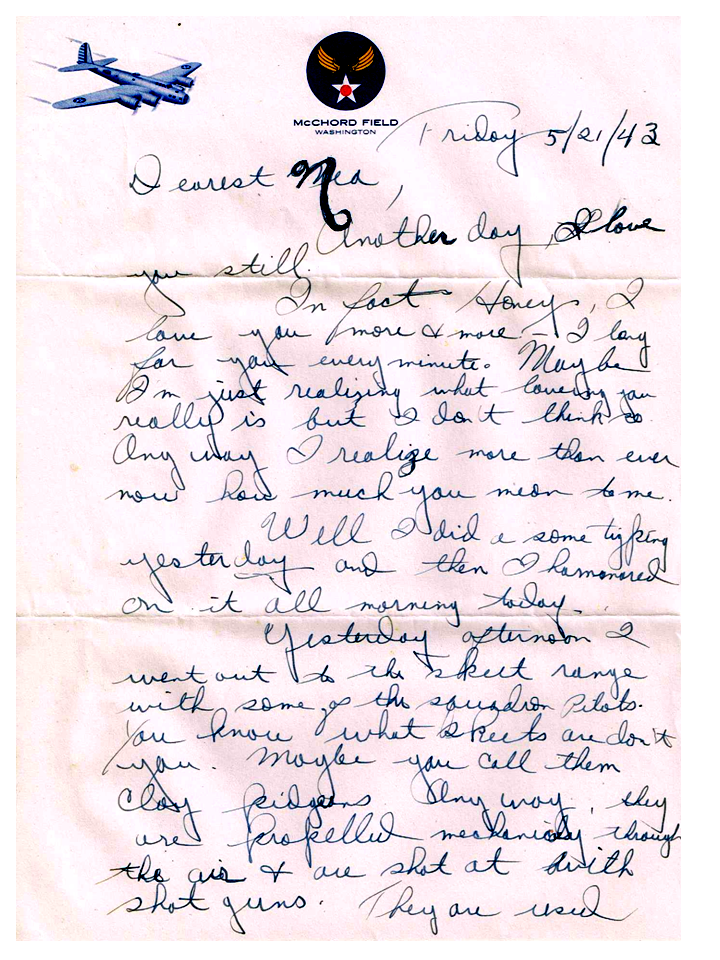 McCHORD FIELD
WASHINGTON
Friday 5/21/43
Dearest Mea,
Another day, I love
you still.
In fact Honey, I
love you more & more – I long
for you every minute. Maybe
I'm just realizing what loveing you
really is but I don't think so
Any way I realize more than ever
now how much you mean to me.
Well I did a some typing
yesterday and then I hammored
on it all morning today.
Yesterday afternoon I
went out to the skeet range
with some of the squadron Pilots.
You know what skeets are don't
you. Maybe you call them
Clay pidgeons. Any way, they
are propelled mechanicly through
the air & are shot at with
shot guns. They are used